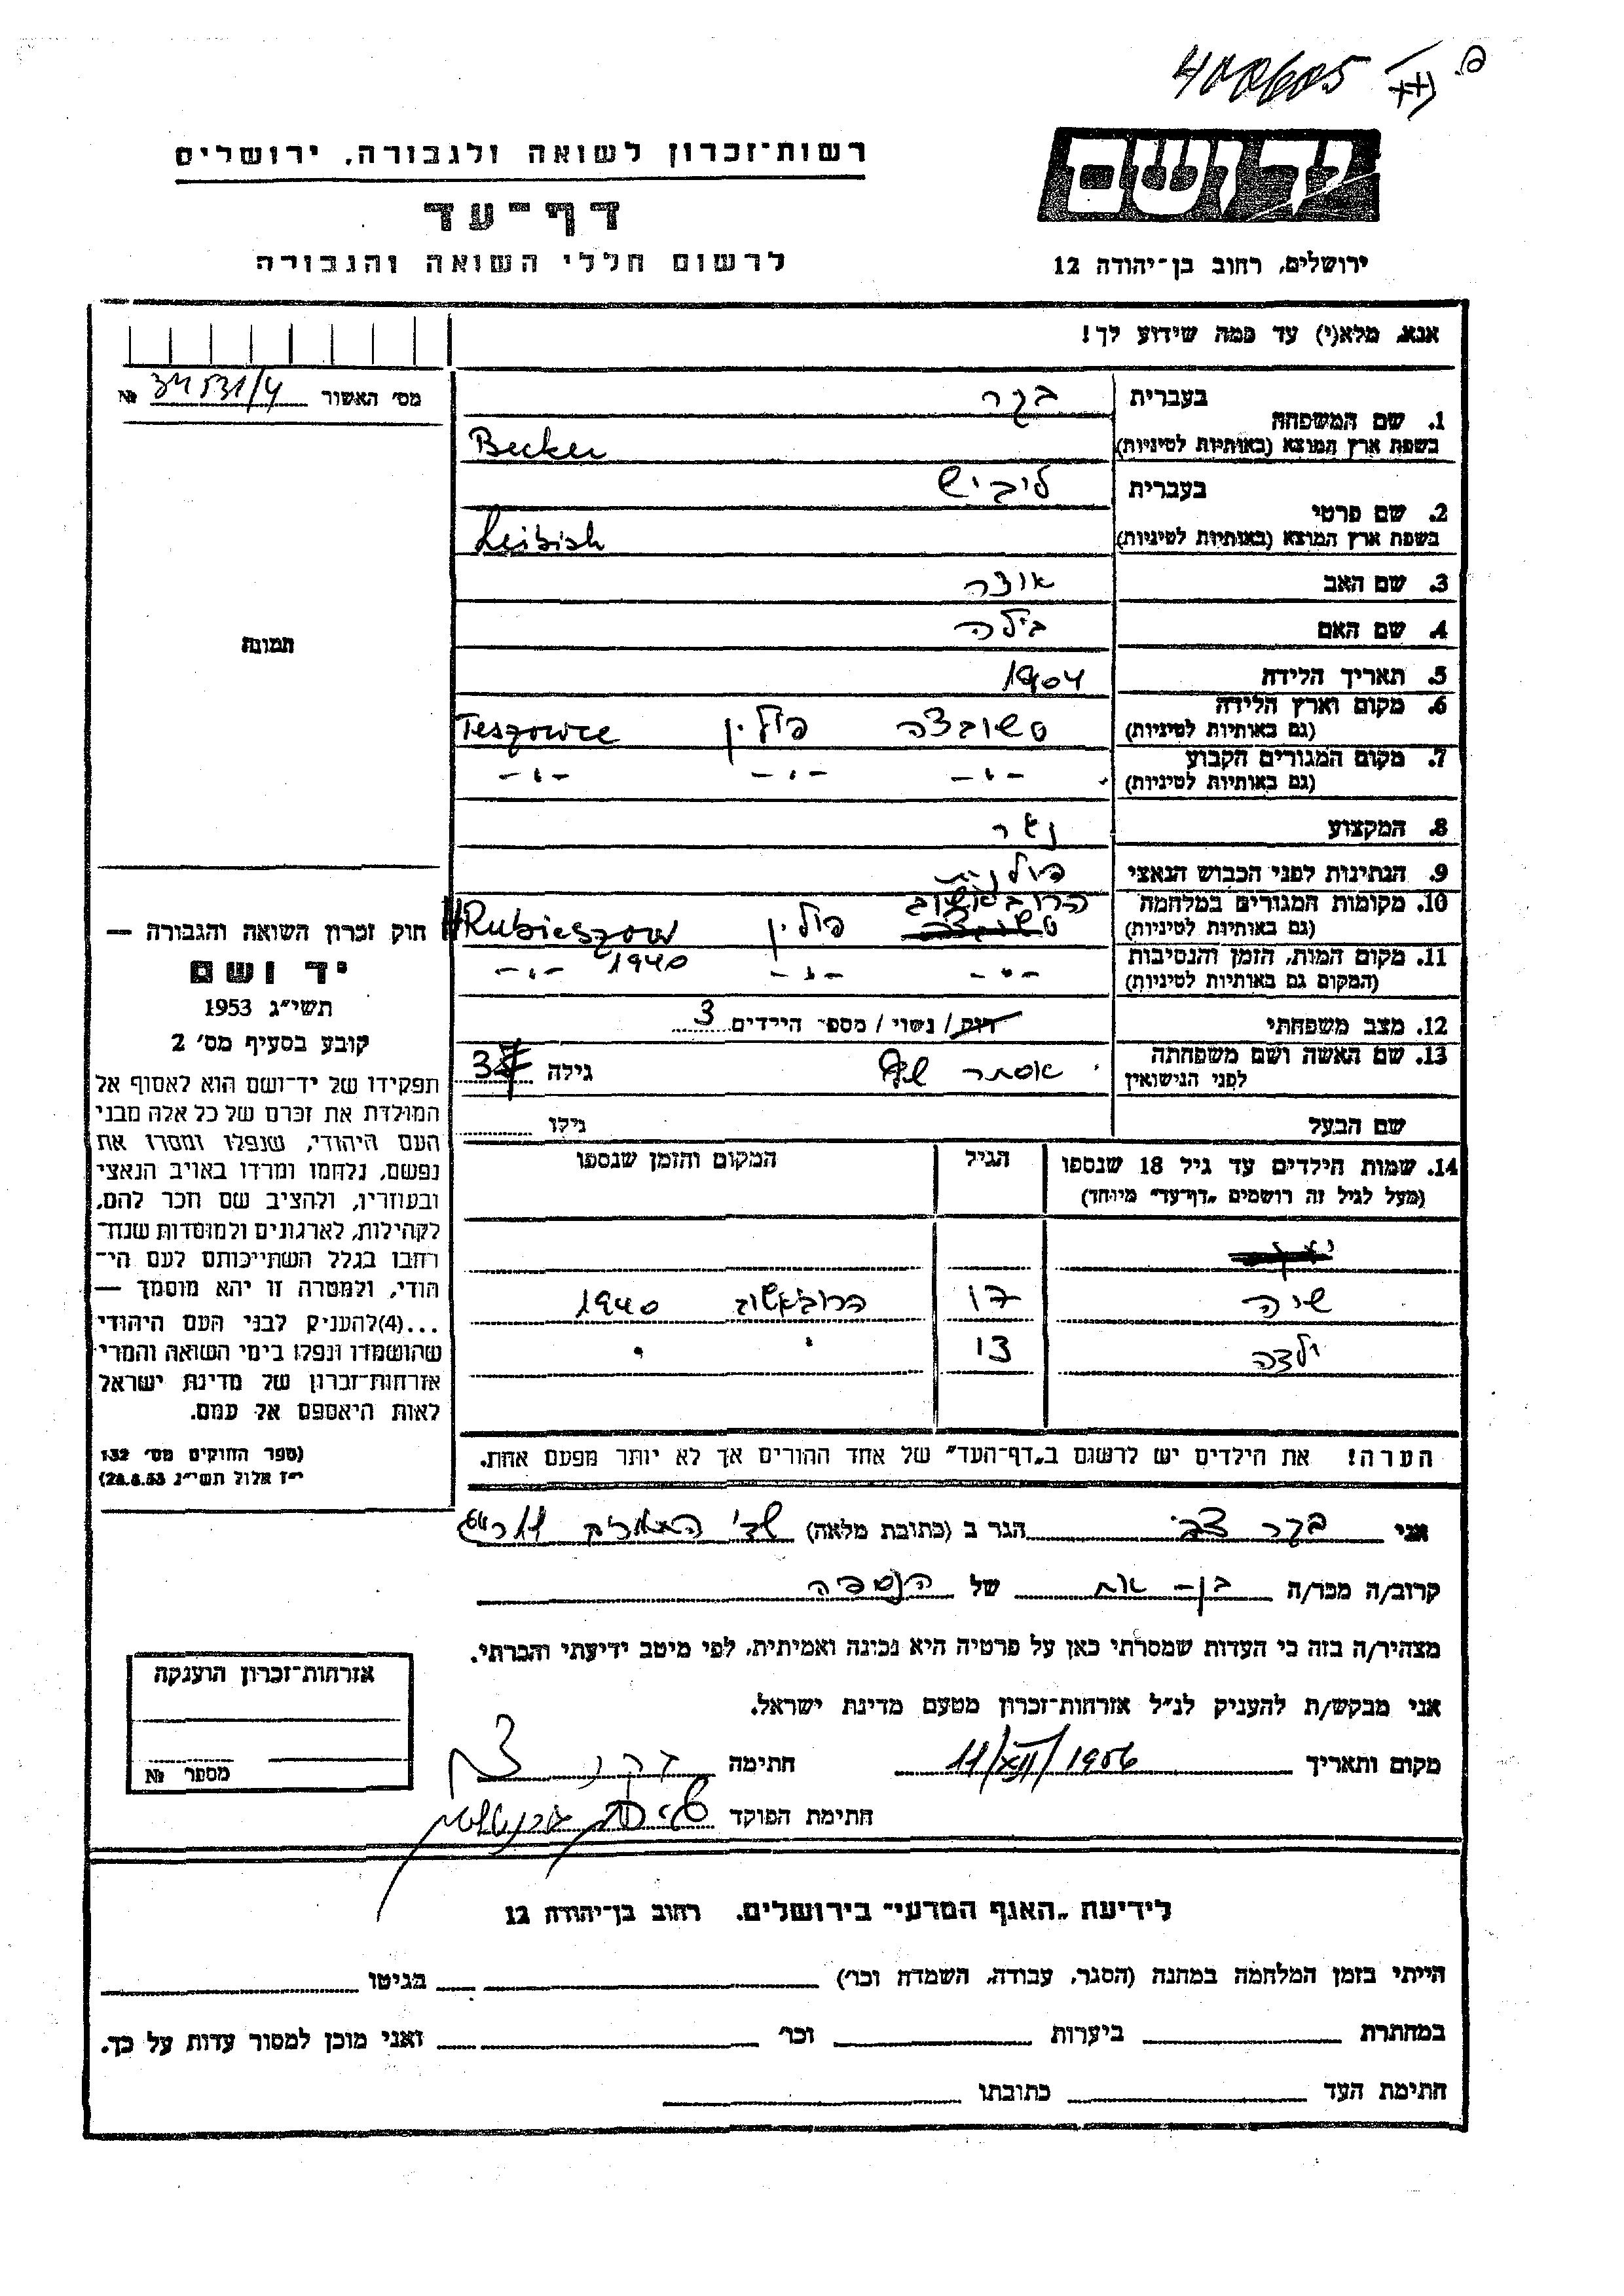 400605
רשות־זכרון לשואה ולגבורה, ירושלים
יד ושם
דף־עד
לרשום חללי השואה והגבורה
ירושלים, רחוב בן־יהודה 12
אנא, מלא(י) עד כמה שידוע לך!
מס׳ האשור 34531/4 №
1. שם המשפחה
בעברית בקר
בשפת ארץ המוצא (באותיות לטיניות) Becker
2. שם פרטי
בעברית ליביש
בשפת ארץ המוצא (באותיות לטיניות) Leibish
3. שם האב
4. שם האם בילה
5. תאריך הלידה 1904
6. מקום וארץ הלידה (גם באותיות לטיניות) טשובצה פולין Teszowce
7. מקום המגורים הקבוע (גם באותיות לטיניות) -"- -"- -"-
8. המקצוע נגר
9. הנתינות לפני הכבוש הנאצי פולנית
10. מקומות המגורים במלחמה (גם באותיות לטיניות) הרובישוב פולין HRubieszow
11. מקום המות, הזמן והנסיבות (המקום גם באותיות לטיניות) -"- -"- -"- 1940
12. מצב משפחתי רווק / נשוי / מספר הילדים 3
13. שם האשה ושם משפחתה לפני הנישואין אסתר גילה
שם הבעל גילו
14. שמות הילדים עד גיל 18 שנספו (מעל לגיל זה רושמים „דף־עד״ מיוחד) הגיל המקום והזמן שנספו
שיה 17 הרובשוב 1940
ילדה 13 " "
הערה! את הילדים יש לרשום ב„דף־העד״ של אחד ההורים אך לא יותר מפעם אחת.
תמונה
חוק זכרון השואה והגבורה —
יד ושם
תשי״ג 1953
קובע בסעיף מס׳ 2
תפקידו של יד־ושם הוא לאסוף אל
המולדת את זכרם של כל אלה מבני
העם היהודי, שנפלו ומסרו את
נפשם, נלחמו ומרדו באויב הנאצי
ובעוזריו, ולהציב שם וזכר להם,
לקהילות, לארגונים ולמוסדות שנח־
רבו בגלל השתייכותם לעם הי־
הודי, ולמטרה זו יהא מוסמך —
...(4) להעניק לבני העם היהודי
שהושמדו ונפלו בימי השואה והמרי
אזרחות־זכרון של מדינת ישראל
לאות היאספם אל עמם.
(ספר החוקים מס׳ 132
י״ז אלול תשי״ג 28.8.53)
אני בקר צבי הגר ב (כתובת מלאה)
קרוב/ה מכר/ה בן-אח של הנספה
מצהיר/ה בזה כי העדות שמסרתי כאן על פרטיה היא נכונה ואמיתית, לפי מיטב ידיעתי והכרתי.
אני מבקש/ת להעניק לנ״ל אזרחות־זכרון מטעם מדינת ישראל.
מקום ותאריך 11/XII/1956 חתימה
חתימת הפוקד
אזרחות־זכרון הוענקה
מספר №
לידיעת „האגף המדעי״ בירושלים, רחוב בן־יהודה 12
הייתי בזמן המלחמה במחנה (הסגר, עבודה, השמדה וכו׳) בגיטו
במחתרת ביערות וכו׳ ואני מוכן למסור עדות על כך.
חתימת העד כתובתו